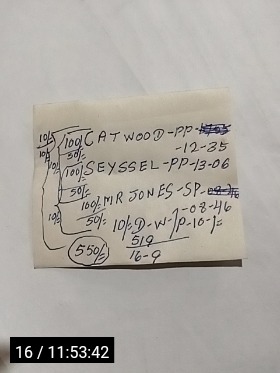 10/- 100/- CATWOOD-PP-
10/- 50/- -12-35
10/- 100/- SEYSSEL-PP-13-06
50/-
100/- MR JONES-SP-
10/- 50/- -08-46
10/- D-W-P-10-/=
550/- 519
16-9
16 / 11:53:42